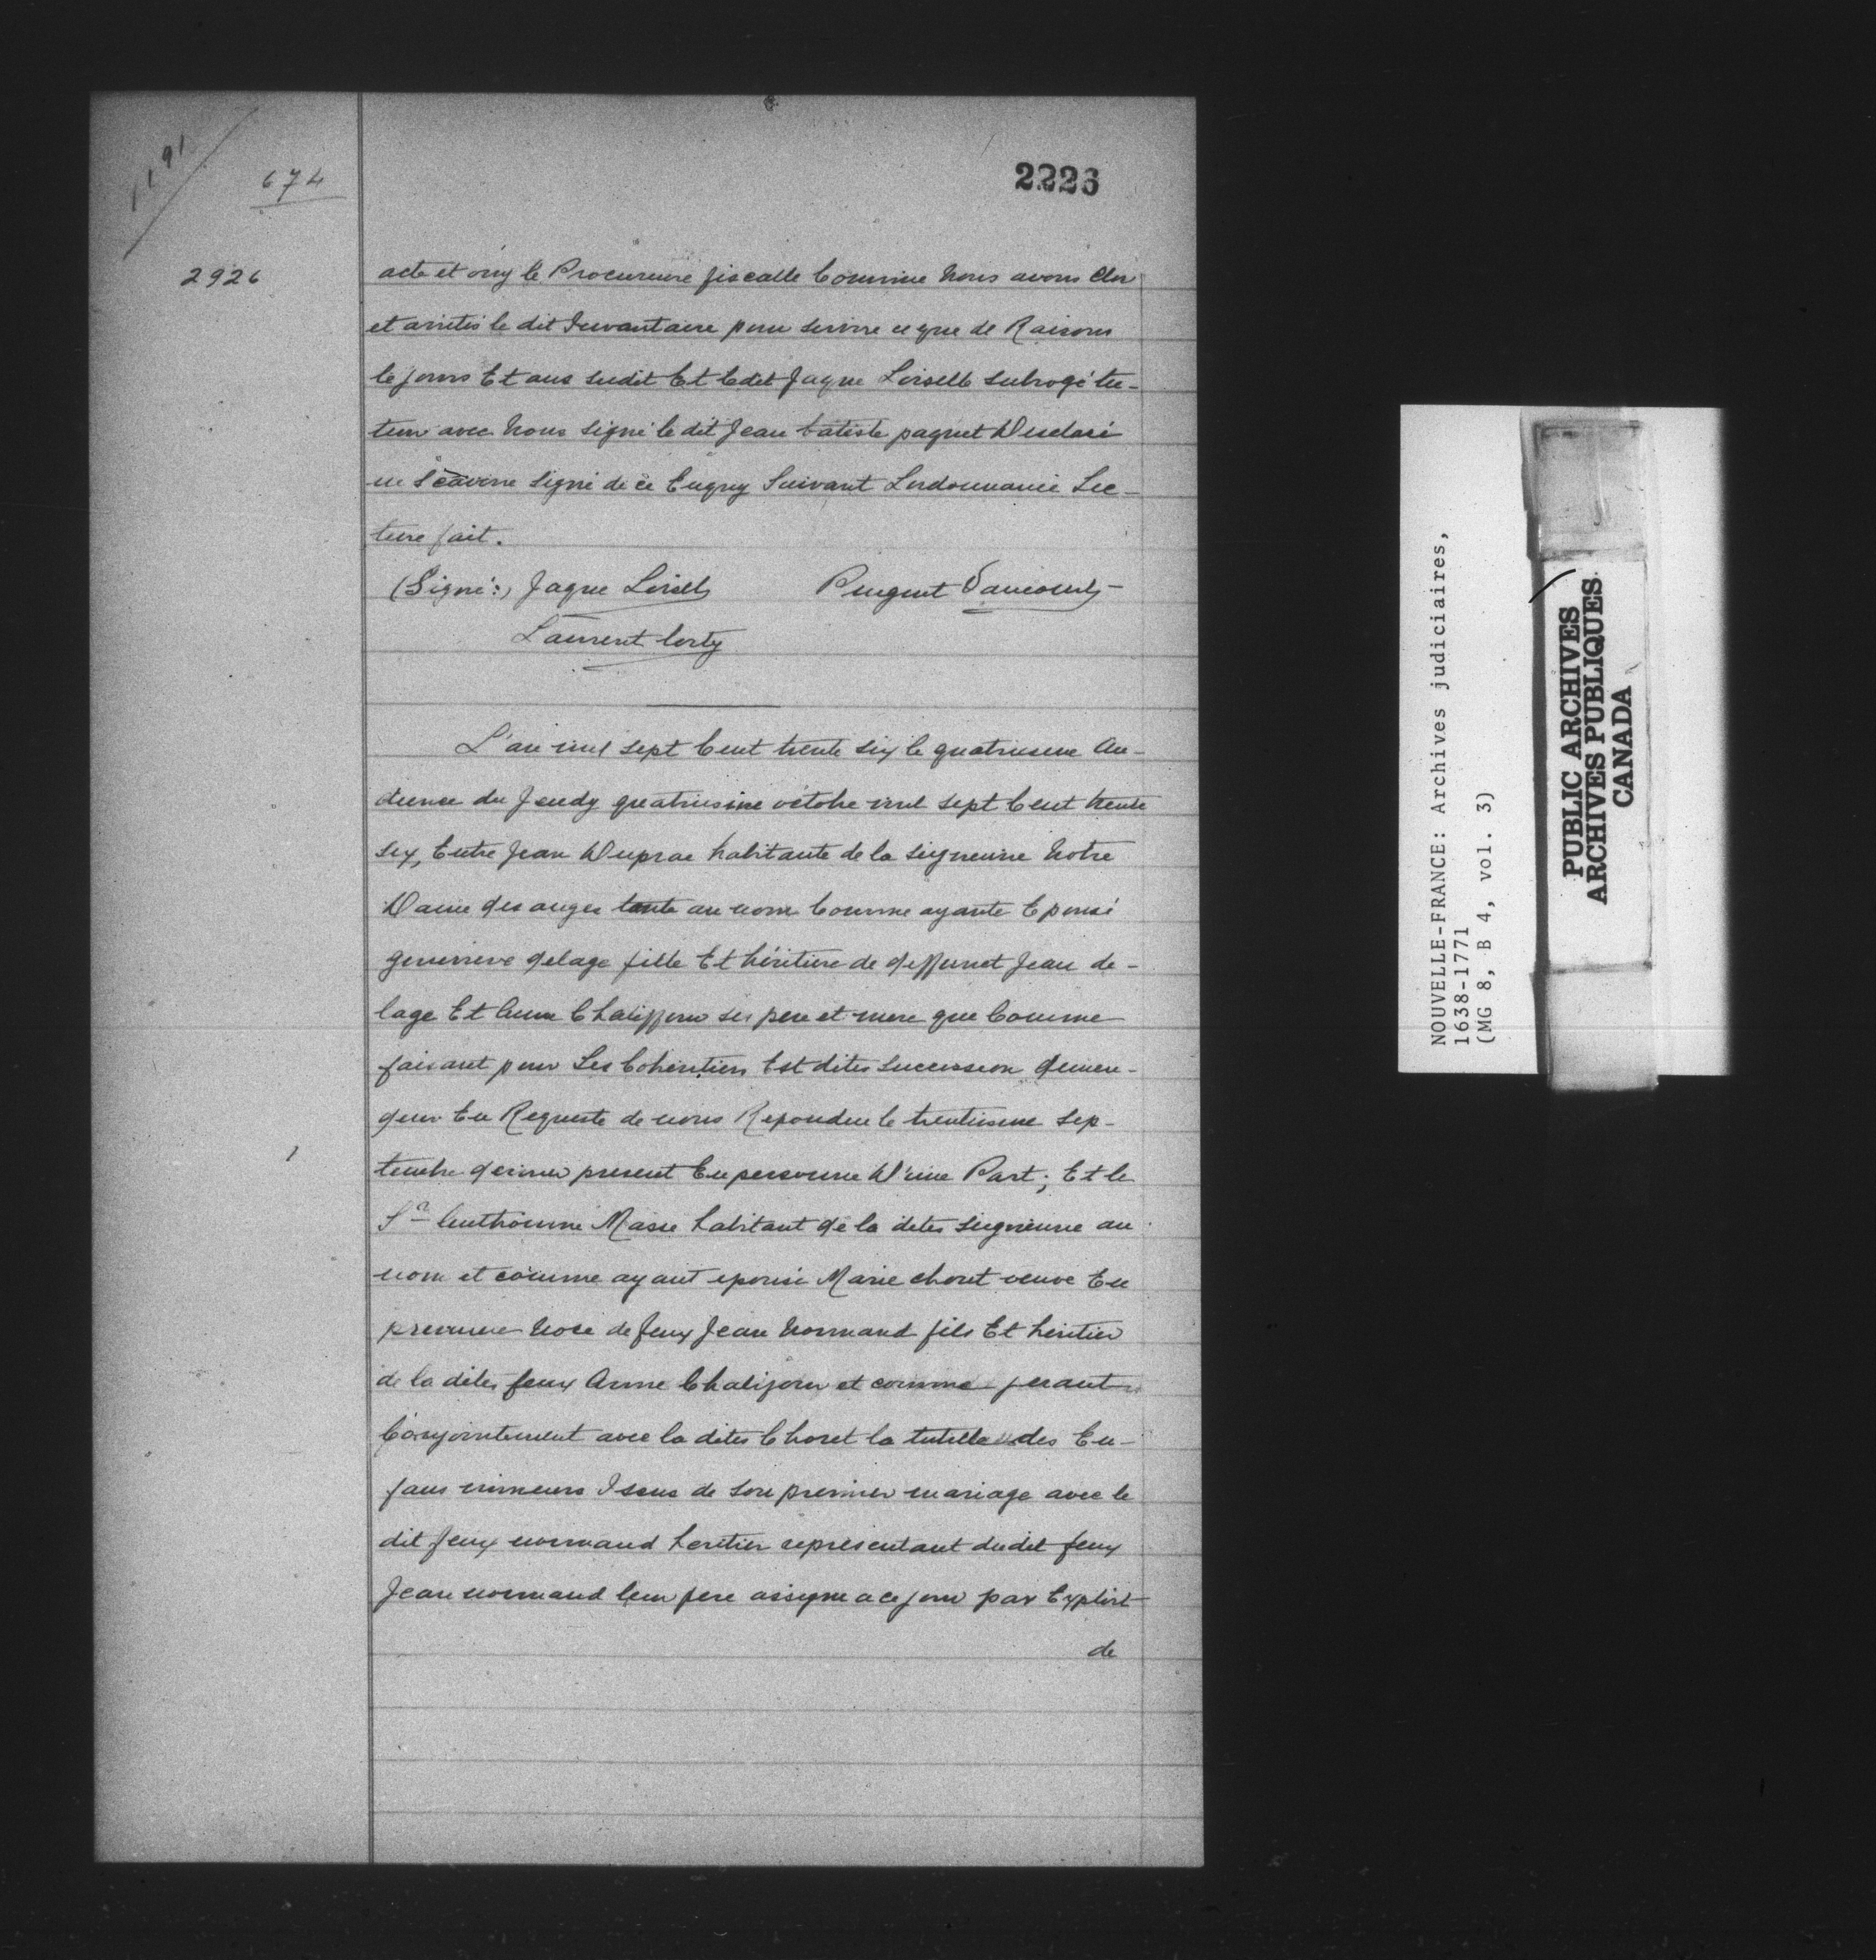 1191
674
2226
2926
acte et ouy le Procureure fiscalle Comme Nous avons Clos
et arretés le dit Inventaire pour servire ce que de Raisons
le jours Et ans sudit Et ledit Jaque Loiselle subrogé tu-
teur avec Nous signé le dit Jean batiste paquet Desclaré
ne sçavoire signé de ce Enquy Suivant Lordonnance Lec-
ture fait.
(Signé:) Jaque Loiselle Pinguet Vaucours
Laurent Corty
L'an mil sept Cent trente six le quatriesme Au-
dience du Jeudy quatriesme octobre mil sept Cent trente
six, Entre Jean Duprac habitante de la Seigneurie Notre
Dame des anges tante au nom Comme ayante Epousé
genevieve delage fille Et héritiere de deffunct Jean de-
lage Et Anne Chalifour ses pere et mere que Comme
faisant pour Les Coheritiers Est dites succession demen-
deur En Requeste de nous Repondue le trentiesme Sep-
tembre dernier present En personne D'une Part; Et le
Sr Anthoinne Masse habitant de la dites Seigneurie au
nom et comme ayant epousé Marie choret veuve En
premiere Noce de feux Jean Normand fils Et heritier
de la dites feux Anne Chalifour et comme gerant
Conjointement avec la dites Choret la tutelle des En-
fans mineurs Issus de son premier mariage avec le
dit feux normand heritier representant dudit feux
Jean normand leur pere assigne a ce jour par Exploit
de
NOUVELLE-FRANCE: Archives judiciaires,
1638-1771
(MG 8, B 4, vol. 3)
PUBLIC ARCHIVES
ARCHIVES PUBLIQUES
CANADA